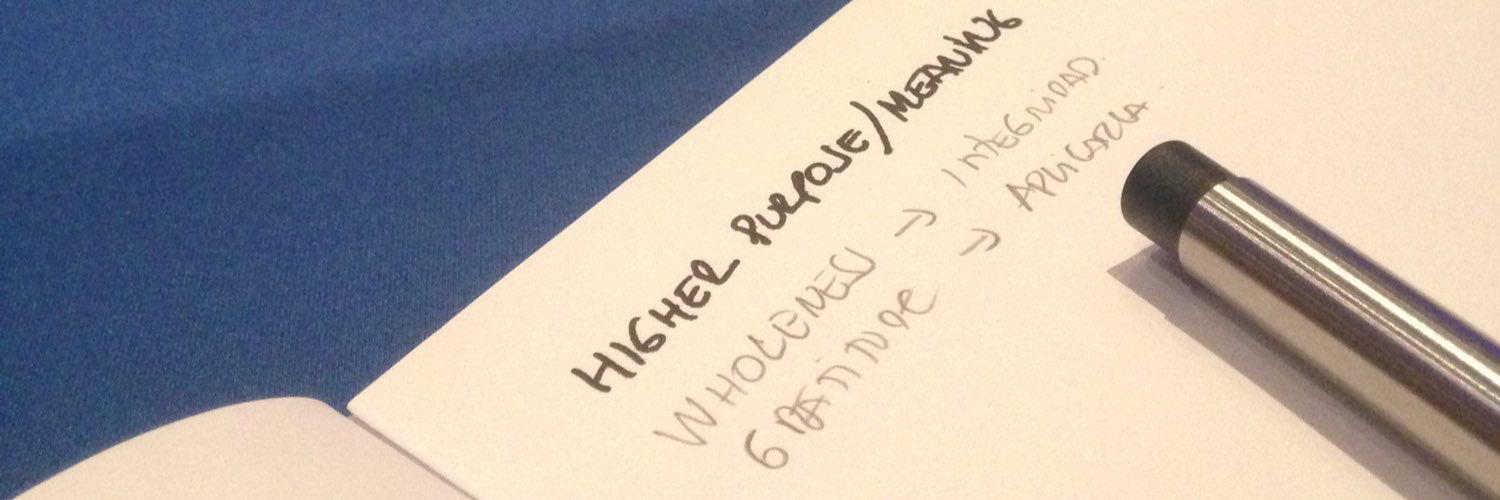 HIGHER PURPOSE/MEANING
WHOLENESS → INTEGRIDAD.
GRATITUDE → APLICARLA.